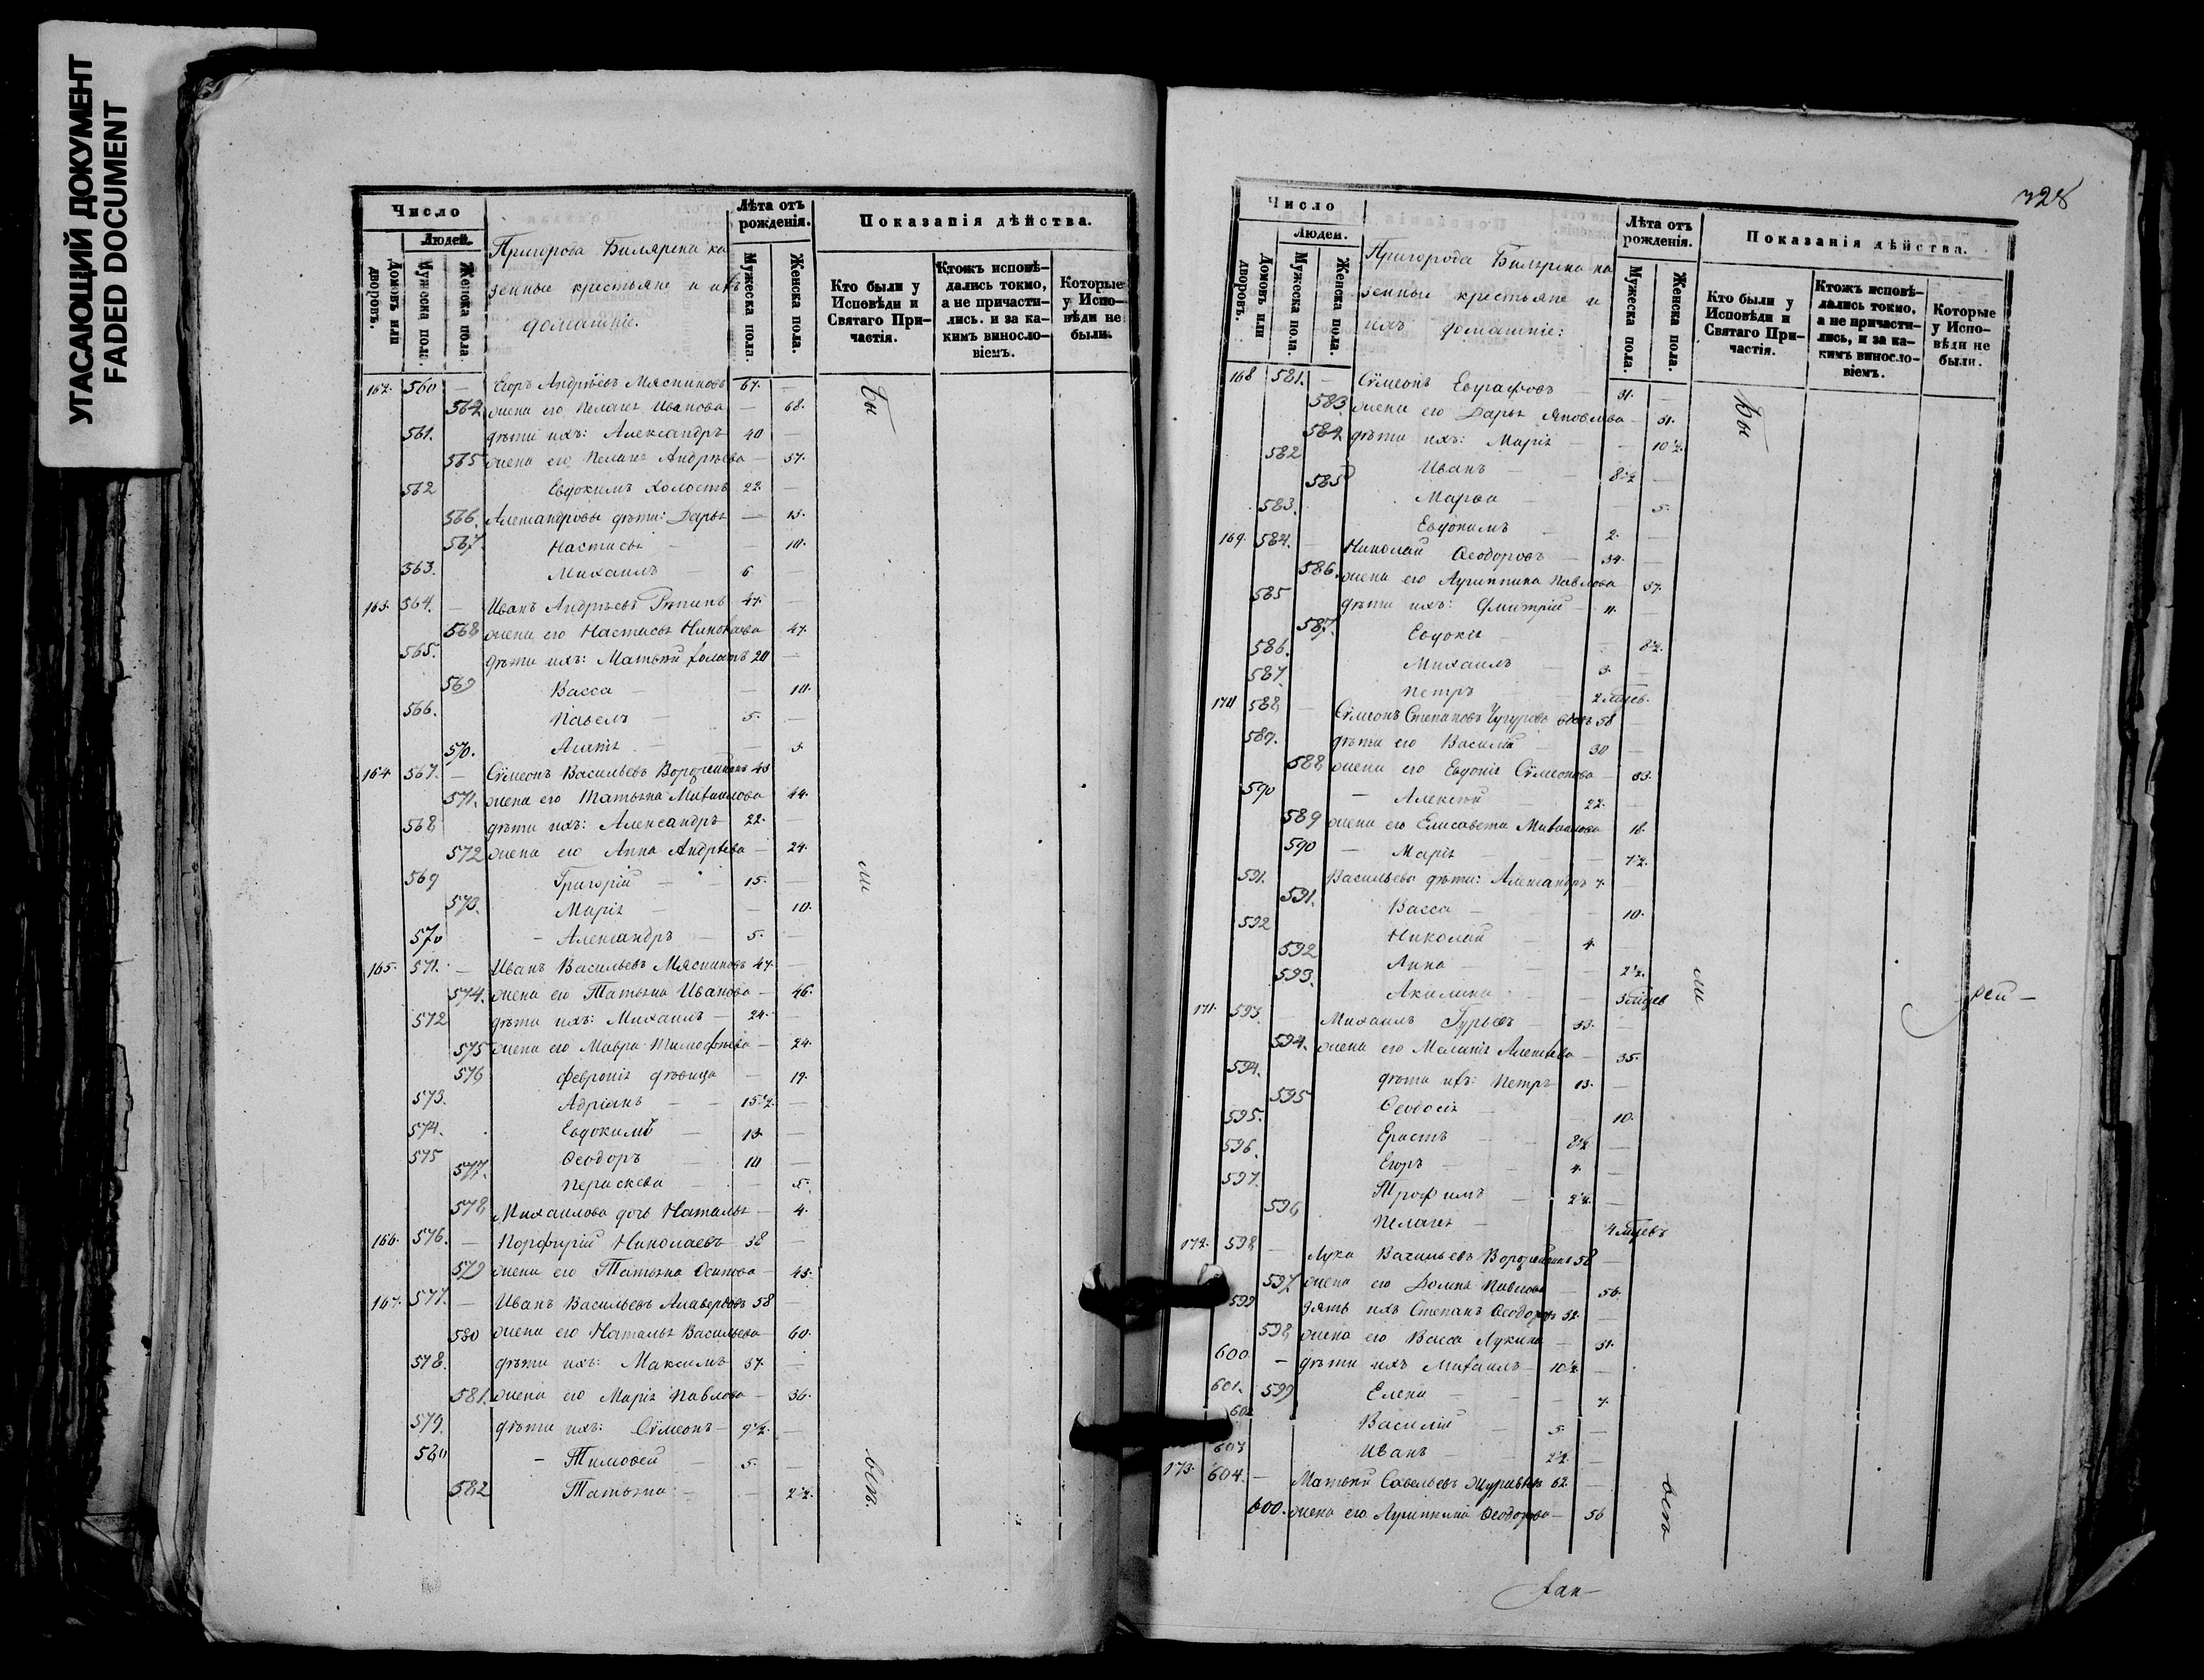 УГАСАЮЩИЙ ДОКУМЕНТ
FADED DOCUMENT
Число
Людей.
Домовъ или дворовъ.
Мужеска пола.
Женска пола.
Пригорода Билярска ка
зенные крестьяне и ихъ
домашніе.
Лѣта отъ рожденія.
Мужеска пола.
Женска пола.
Показанія дѣйства.
Кто были у Исповѣди и Святаго Причастія.
Ктожъ исповѣдались токмо, а не причастились. и за какимъ винословіемъ.
Которые у Исповѣди не были.
162. 560 — Егоръ Андрѣевъ Мясниковъ 67. —
564 жена его Пелагея Иванова — 68.
561. дѣти ихъ: Александръ 40 —
565 жена его Пелагея Андрѣева — 37.
562 Евдокимъ холостъ 22. —
566. Александровы дѣти: Дарья — 13.
567. Настасья — — 10.
563. Михаилъ — 6 —
163. 564. — Иванъ Андрѣевъ Рѣпинъ 47. —
568 жена его Настасья Николаева 47.
565. дѣти ихъ: Матвѣй холостъ 20 —
569 Васса — — 10.
566. Павелъ — 5. —
570. Агапія — — 3.
164. 567. — Сѵмеонъ Васильевъ Ворожейкинъ 43
571. жена его Татьяна Михаилова 44.
568 дѣти ихъ: Александръ 22. —
572 жена его Анна Андрѣева — 24.
569 Григорій — — 15. —
573. Марія — — 10.
570 — Александръ — 5. —
165. 571. — Иванъ Васильевъ Мясниковъ 47. —
574. жена его Татьяна Иванова — 46.
572 дѣти ихъ: Михаилъ — 24. —
575 жена его Мавра Тимофѣева — 24.
576 Февронія дѣвица — 19.
573. Адріанъ — — 15½. —
574. Евдокимъ — 13. —
575 Ѳеодоръ — 10 —
577. Параскева — — 5.
578 Михаилова дочь Наталья — 4.
166. 576. — Порфирій Николаевъ — 38 —
579 жена его Татьяна Осипова — 43.
167. 577. — Иванъ Васильевъ Алавердовъ 58 —
580 жена его Наталья Васильева 60.
578. дѣти ихъ: Максимъ 37. —
581. жена его Марія Павлова — 36.
579. дѣти ихъ: Сѵмеонъ — 9½. —
580 — Тимоѳей — 5. —
582 Татьяна — — 2½.
Бы
ли
всѣ.
328
Число
Людей.
Домовъ или дворовъ.
Мужеска пола.
Женска пола.
Пригорода Билярска ка
зенные крестьяне и
ихъ домашніе:
Лѣта отъ рожденія.
Мужеска пола.
Женска пола.
Показанія дѣйства.
Кто были у Исповѣди и Святаго Причастія.
Ктожъ исповѣдались токмо, а не причастились, и за какимъ винословіемъ.
Которые у Исповѣди не были.
168 581. — Сѵмеонъ Евграфовъ — 31. —
583. жена его Дарья Яковлева — 31.
584 дѣти ихъ: Марія — — 10½.
582 Иванъ — — 8½ —
585 Марѳа — — 5.
583. Евдокимъ — 2. —
169. 584. — Николай Ѳеодоровъ — 34. —
586. жена его Агрипина Павлова 37.
585 дѣти ихъ: Дмитрій — 11. —
587. Евдокія — — 8½.
586. Михаилъ — 3. —
587. Петръ 2 мѣсяц.
170 588 — Сѵмеонъ Степановъ вдовъ 58
589. дѣти его Василій — 30 —
588 жена его Евдокія Сѵмеонова — 33.
590 — Алексѣй — 22. —
589 жена его Елисавета Михаилова 18.
590 — Марія — — 7½.
591. Васильева дѣти: Александръ 7. —
591. Васса — — 10.
592 Николай — 4. —
592 Анна — — 2½.
593. Акилина — — 3 мѣсяц
171. 593. — Михаилъ Гурьевъ — 33. —
594. жена его Меланія Алексѣева — 35.
594. дѣти ихъ: Петръ 13. —
595 Ѳеодосія — — 10.
595. Ерастъ — — 8½ —
596. Егоръ — — 4. —
597. Трофимъ — 2½. —
596 Пелагея — 4 мѣсяцевъ
172. 598 — Лука Васильевъ Ворожейкинъ 58 —
597 жена его Домна Павлова — 56.
599 зять ихъ Степанъ Ѳеодоровъ 32. —
598 жена его Васса Лукина — 31.
600 — дѣти ихъ Михаилъ — 10½. —
601. 599 Елена — — 7.
602 Василій — 5. —
603 Иванъ — 2½. —
173. 604. — Матвѣй Савельевъ 62. —
600. жена его Агрипина Ѳеодорова — 56
Бы
ли
всѣ
рей —